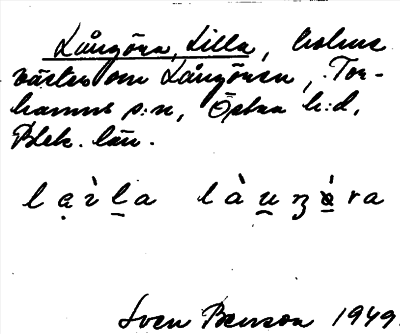 Långöra, Lilla, holme
väster om Långören, Tor-
hamns s:n, Östra h:d,
Blek. län.
lạ̀ıl̠a làu̠ʒø̠̀ra
Sven Benson 1949